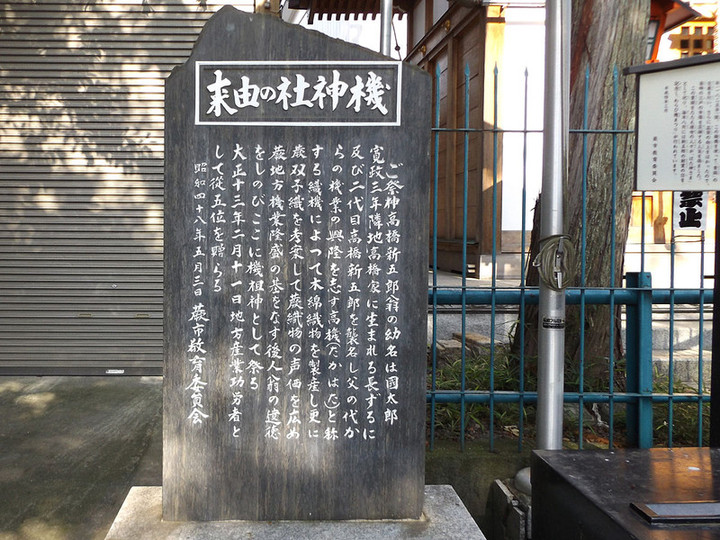 機神社の由来
ご祭神高橋新五郎翁の幼名は國太郎
寛政三年隣地高橋家に生まれる長ずるに
及び二代目高橋新五郎を襲名し父の代か
らの機業の興隆を志す高機(たかはた)と称
する織機によって木綿織物を製産し更に
蕨双子織を考案して蕨織物の声価を広め
蕨地方機業隆盛の基をなす後人翁の遺徳
をしのびここに機祖神として祭る
大正十三年二月十一日地方産業功労者と
して従五位を贈らる
昭和四十八年五月三日 蕨市教育委員会
禁止
蕨市教育委員会